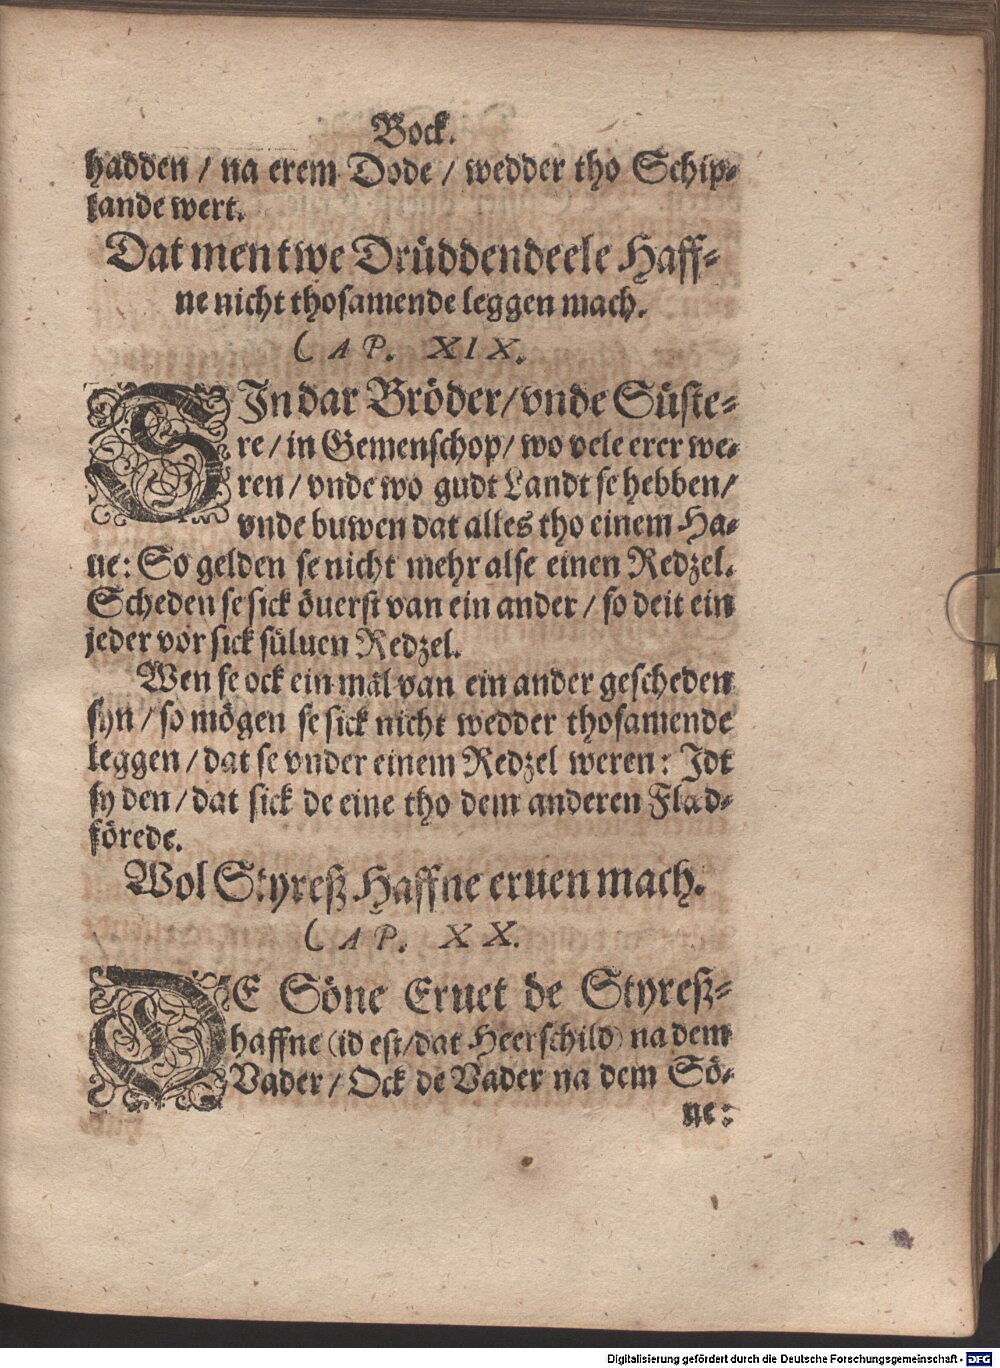 Bock.
hadden / na erem Dode / wedder tho Schip-
kande wert.
Dat men twe Drüddendeele Haff-
ne nicht thosamende leggen mach.
CAP. XIX.
SJn dar Bröder/vnde Süste-
re/in Gemenschop/wo vele erer we-
ren/vnde wo gudt Landt se hebben/
vnde buwen dat alles tho einem Ha-
ne: So gelden se nicht mehr alse einen Redzel.
Scheden se sick öuerst van ein ander / so deit ein
jeder vor sick süluen Redzel.
Wen se ock ein mal van ein ander gescheden
syn / so mögen se sick nicht wedder thosamende
leggen / dat se vnder einem Redzel weren: Jdt
sy den / dat sick de eine tho dem anderen Flad-
förede.
Wol Styreß Haffne eruen mach.
CAP. XX.
DE Söne Eruet de Styreß-
haffne (id est/dat Heerschild) na dem
Vader / Ock de Vader na dem Sö-
ne:
Digitalisierung gefördert durch die Deutsche Forschungsgemeinschaft - DFG